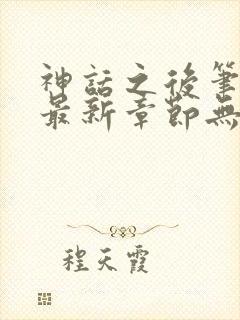 神話之後筆
最新章節無
程天霞